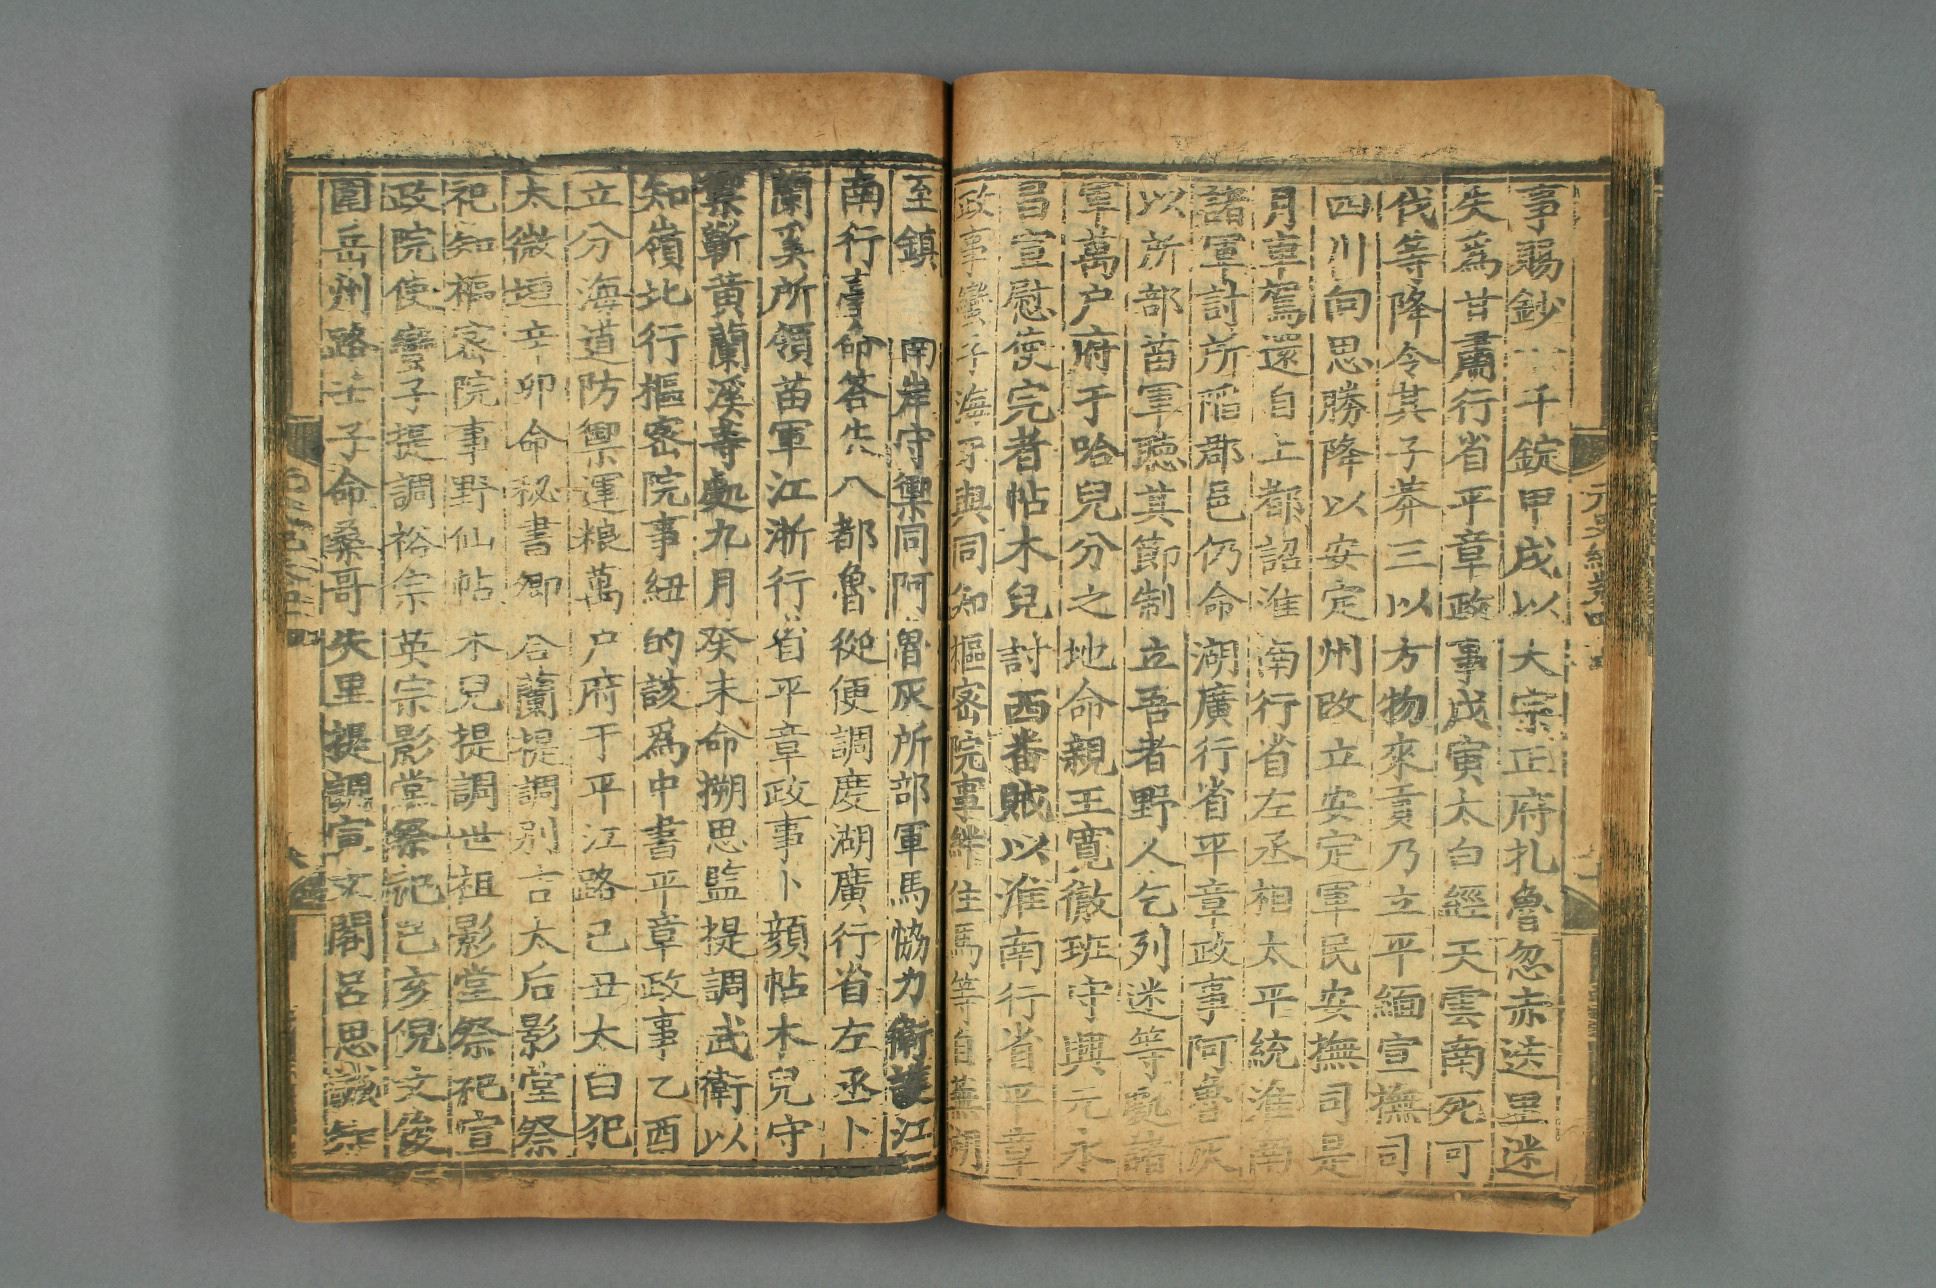 事賜鈔一千錠甲戌以大宗正府扎魯忽赤迭里迷
失爲甘肅行省平章政事戊寅太白經天雲南死可
伐等降令其子莽三以方物來貢乃立平緬宣撫司
四川向思勝降以安定州改立安定軍民安撫司是
月車駕還自上都詔淮南行省左丞相太平統淮南
諸軍討所䧟郡邑仍命湖廣行省平章政事阿魯灰
以所部苗軍聽其節制立吾者野人乞列迷等處諸
軍萬户府于哈兒分之地命親王寬徹班守興元永
昌宣慰使完者帖木兒討西番賊以淮南行省平章
政事蠻子海牙與同知樞密院事絆住馬等自蕪湖
至鎮 南岸守禦同阿魯灰所部軍馬恊力衛護江
南行臺命答失八都魯從便調度湖廣行省左丞卜
蘭奚所領苗軍江浙行省平章政事卜顔帖木兒守
禦蘄黄蘭溪等處九月癸未命搠思監提調武衛以
知嶺北行樞密院事紐的該爲中書平章政事乙酉
立分海道防禦運粮萬户府于平江路己丑太白犯
太微垣辛卯命秘書卿荅蘭提調别吉太后影堂祭
祀知樞密院事野仙帖木兒提調世祖影堂祭祀宣
政院使蠻子提調裕宗英宗影堂祭祀己亥倪文俊
圍岳州路壬子命桑哥失里提調宣文閣吕思誠